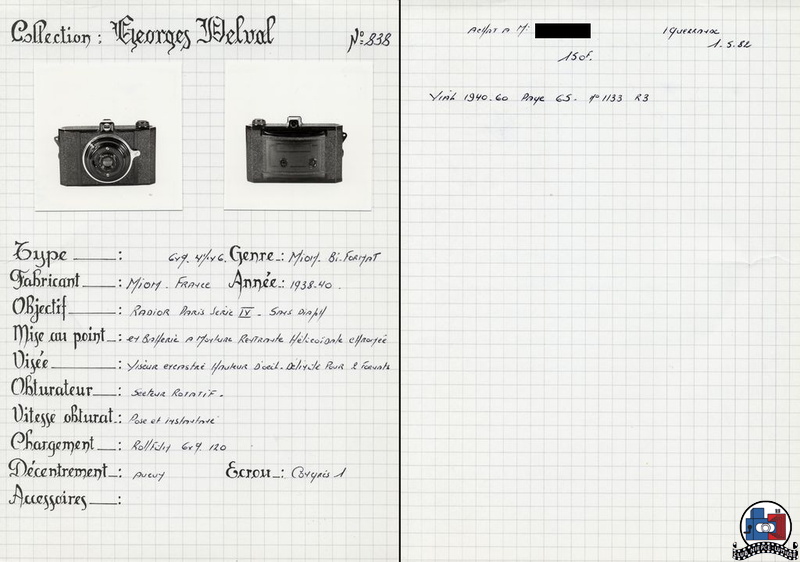 Collection : Georges Delval
N° 838
Type : 6x9. 4½x6. Genre : Miom. Bi-Format
Fabricant : Miom. France Année : 1938.40.
Objectif : Radior Paris Serie IV. Sans Diaph
Mise au point : et Batterie a Monture Rentrante Helicoïdale
Visée : Viseur encastré Hauteur D'oeil. Délimité Pour 2 Formats
Obturateur : Secteur Rotatif.
Vitesse obturat : Pose et instantané
Chargement : Rollfilm 6x9. 120
Décentrement : aucun Ecrou : Congrès 1
Accessoires :
Achat a M:
1.5.82
150F.
Vial 1940.60 Page 65. n° 1133 R3